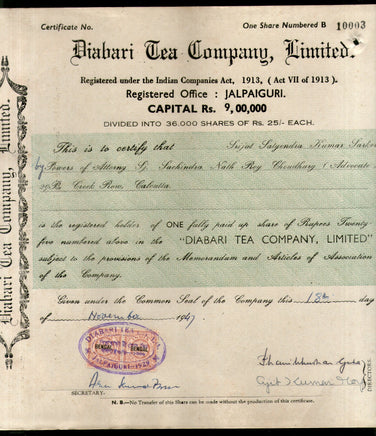 Certificate No.
One Share Numbered B 10003
Diabari Tea Company, Limited.
Registered under the Indian Companies Act, 1913, ( Act VII of 1913 ).
Registered Office : JALPAIGURI.
CAPITAL Rs. 9,00,000
DIVIDED INTO 36,000 SHARES OF Rs. 25/- EACH.
Diabari Tea Company, Limited.
This is to certify that Satyendra Kumar
by Powers of Attorny Sachindra Nath Roy Choudhary Advocate
Creek Row, Calcutta.
is the registered holder of ONE fully paid up share of Rupees Twenty
five numbered above in the "DIABARI TEA COMPANY, LIMITED"
subject to the provisions of the Memorandum and Articles of Association
of the Company.
Given under the Common Seal of the Company this 18th day
of November 1947
BENGAL BENGAL
JALPAIGURI
SECRETARY.
DIRECTORS.
N. B.—No Transfer of this Share can be made without the production of this certificate.